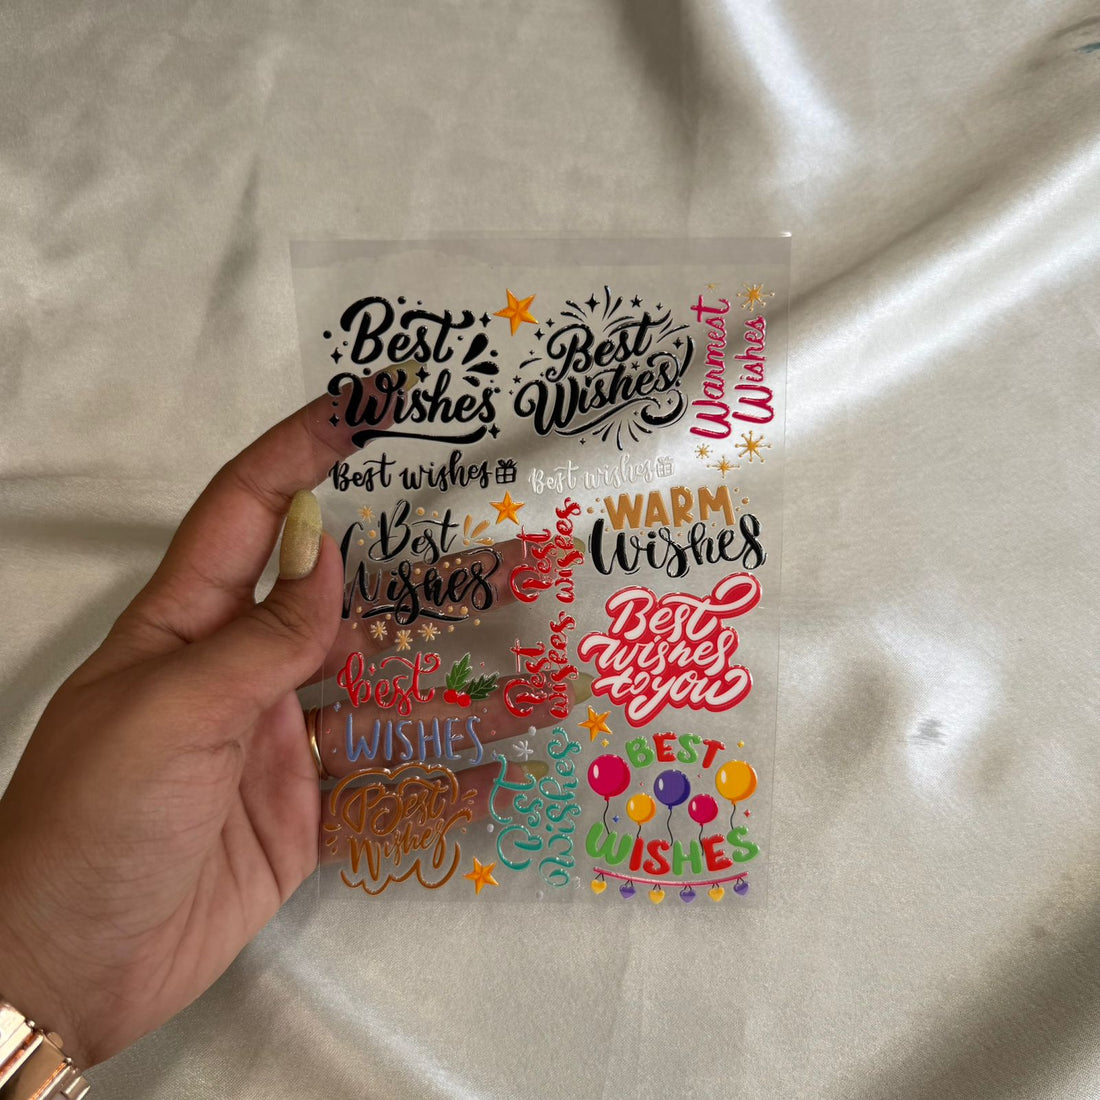 Best
Wishes
Best
Wishes!
Warmest
Wishes
Best wishes
Best wishes
Best
Wishes
Best
wishes
WARM
Wishes
Best
wishes
to you
best
WISHES
Best
wishes
Best
Wishes
Best
Wishes
BEST
WISHES